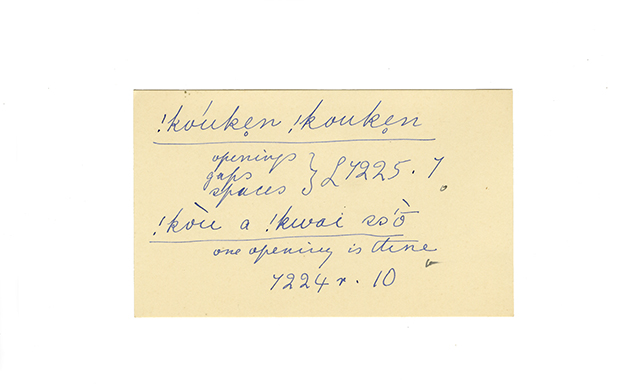 !kóukẹn !koukẹn
openings
gaps
spaces } L 7225. 7.
!kòu a !kwai ssʼò̄
one opening is there
7224 r. 10